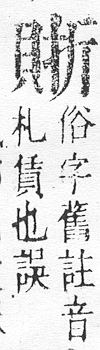 俗字舊註音
札賃也誤